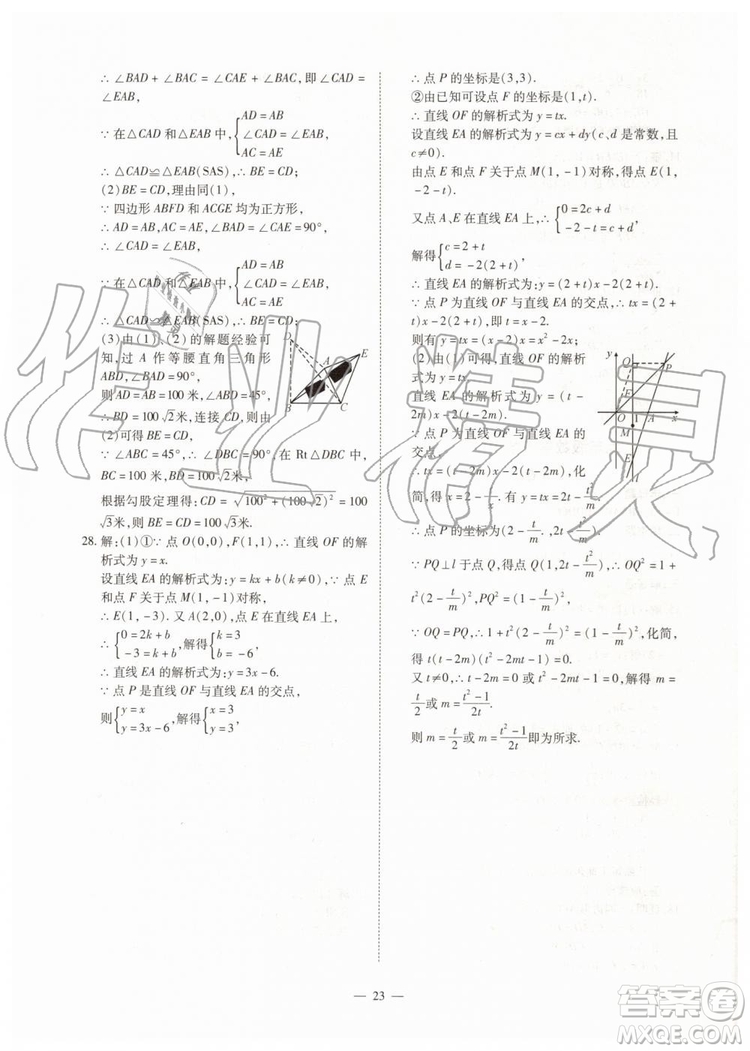 ∴ ∠BAD + ∠BAC = ∠CAE + ∠BAC,即 ∠CAD =
∠EAB,
∵ 在△CAD 和△EAB 中,{AD = AB
∠CAD = ∠EAB
AC = AE
∴ △CAD≌△EAB(SAS),∴ BE = CD;
(2)BE = CD,理由同(1),
∵ 四边形 ABFD 和 ACGE 均为正方形,
∴ AD = AB,AC = AE,∠BAD = ∠CAE = 90°,
∴ ∠CAD = ∠EAB,
∵ 在△CAD 和△EAB 中,{AD = AB
∠CAD = ∠EAB
AC = AE
∴ △CAD≌△EAB(SAS),∴ BE = CD;
(3)由(1)、(2)的解题经验可
知,过 A 作等腰直角三角形
ABD,∠BAD = 90°,
则 AD = AB = 100 米,∠ABD = 45°,
∴ BD = 100√2米,连接 CD,则由
(2)可得 BE = CD,
∵ ∠ABC = 45°,∴ ∠DBC = 90°,在 Rt△DBC 中,
BC = 100 米,BD = 100√2米,
根据勾股定理得:CD = √(100² + (100√2)²) = 100
√3米,则 BE = CD = 100√3米.
28. 解:(1)①∵ 点 O(0,0),F(1,1),∴ 直线 OF 的解
析式为 y = x.
设直线 EA 的解析式为:y = kx + b(k≠0)、∵ 点 E
和点 F 关于点 M(1, -1)对称,
∴ E(1, -3). 又 A(2,0),点 E 在直线 EA 上,
∴ {0 = 2k + b
-3 = k + b,解得{k = 3
b = -6,
∴ 直线 EA 的解析式为:y = 3x - 6.
∵ 点 P 是直线 OF 与直线 EA 的交点,
则{y = x
y = 3x - 6,解得{x = 3
y = 3,
∴ 点 P 的坐标是(3,3).
②由已知可设点 F 的坐标是(1,t).
∴ 直线 OF 的解析式为 y = tx.
设直线 EA 的解析式为 y = cx + dy(c、d 是常数,且
c≠0).
由点 E 和点 F 关于点 M(1, -1)对称,得点 E(1,
-2 - t).
又点 A、E 在直线 EA 上,∴ {0 = 2c + d
-2 - t = c + d,
解得{c = 2 + t
d = -2(2 + t),
∴ 直线 EA 的解析式为:y = (2 + t)x - 2(2 + t).
∵ 点 P 为直线 OF 与直线 EA 的交点,∴ tx = (2 +
t)x - 2(2 + t),即 t = x - 2.
则有 y = tx = (x - 2)x = x² - 2x;
(2)由(1)可得,直线 OF 的解析
式为 y = tx.
直线 EA 的解析式为 y = (t -
2m)x - 2(t - 2m).
∵ 点 P 为直线 OF 与直线 EA 的
交点,
∴ tx = (t - 2m)x - 2(t - 2m),化
简,得 x = 2 - t/m. 有 y = tx = 2t - t²/m.
∴ 点 P 的坐标为(2 - t/m,2t - t²/m).
∵ PQ⊥l 于点 Q,得点 Q(1,2t - t²/m),∴ OQ² = 1 +
t²(2 - t/m)²,PQ² = (1 - t/m)²,
∵ OQ = PQ,∴ 1 + t²(2 - t/m)² = (1 - t/m)²,化简,
得 t(t - 2m)(t² - 2mt - 1) = 0.
又 t≠0,∴ t - 2m = 0 或 t² - 2mt - 1 = 0,解得 m =
t/2或 m = (t² - 1)/2t.
则 m = t/2或 m = (t² - 1)/2t即为所求.
— 23 —
作业精灵
答案圈
MXQE.COM